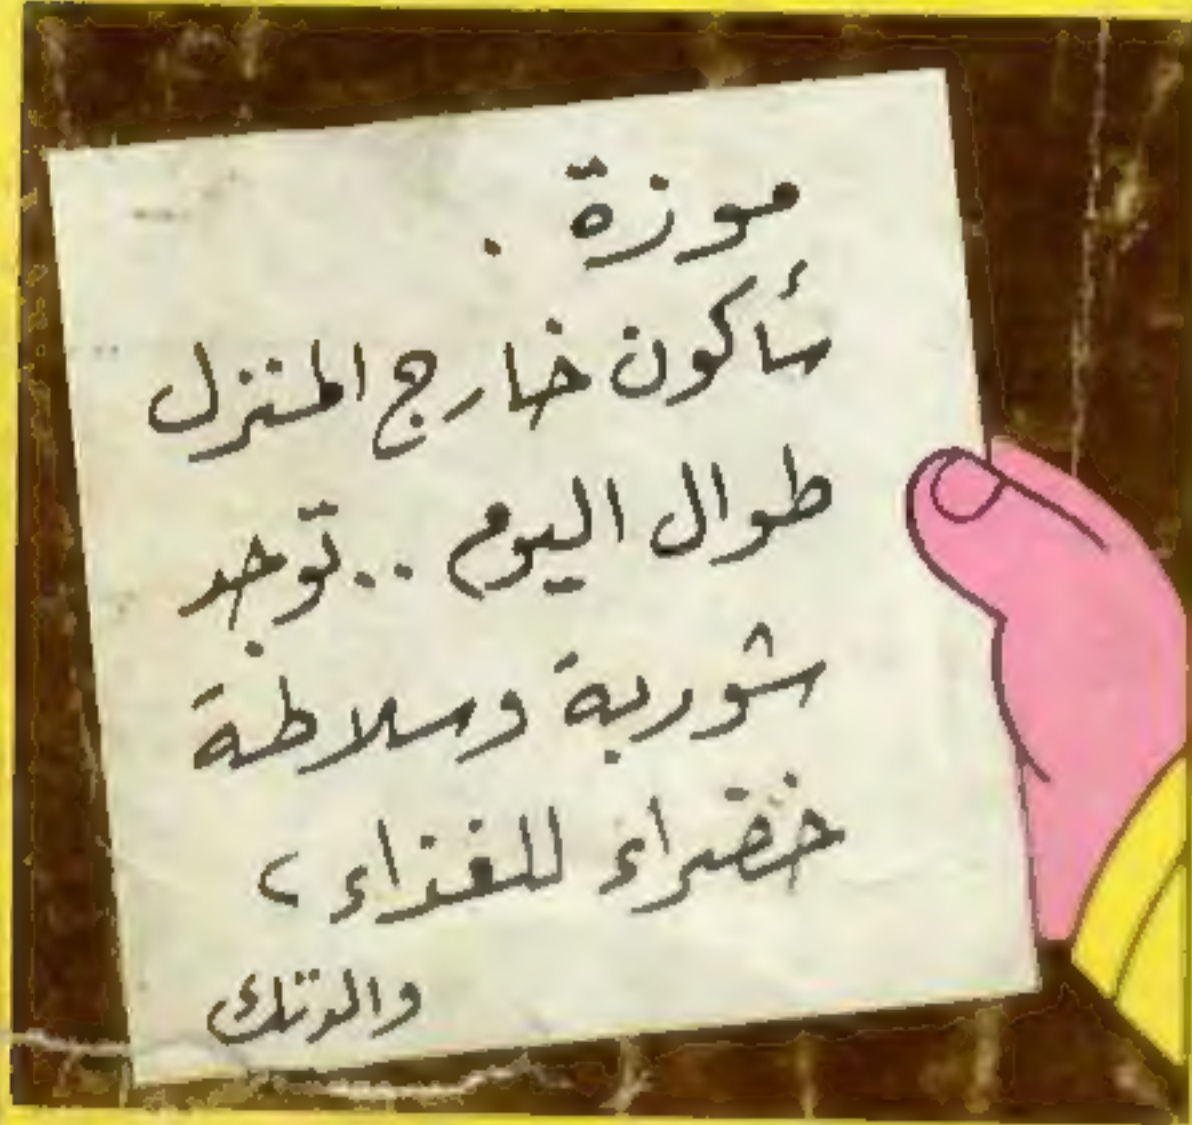 موزة .
سأكون خارج المنزل
طوال اليوم .. توجد
شوربة وسلاطة
خضراء للغذاء ،
والدتك